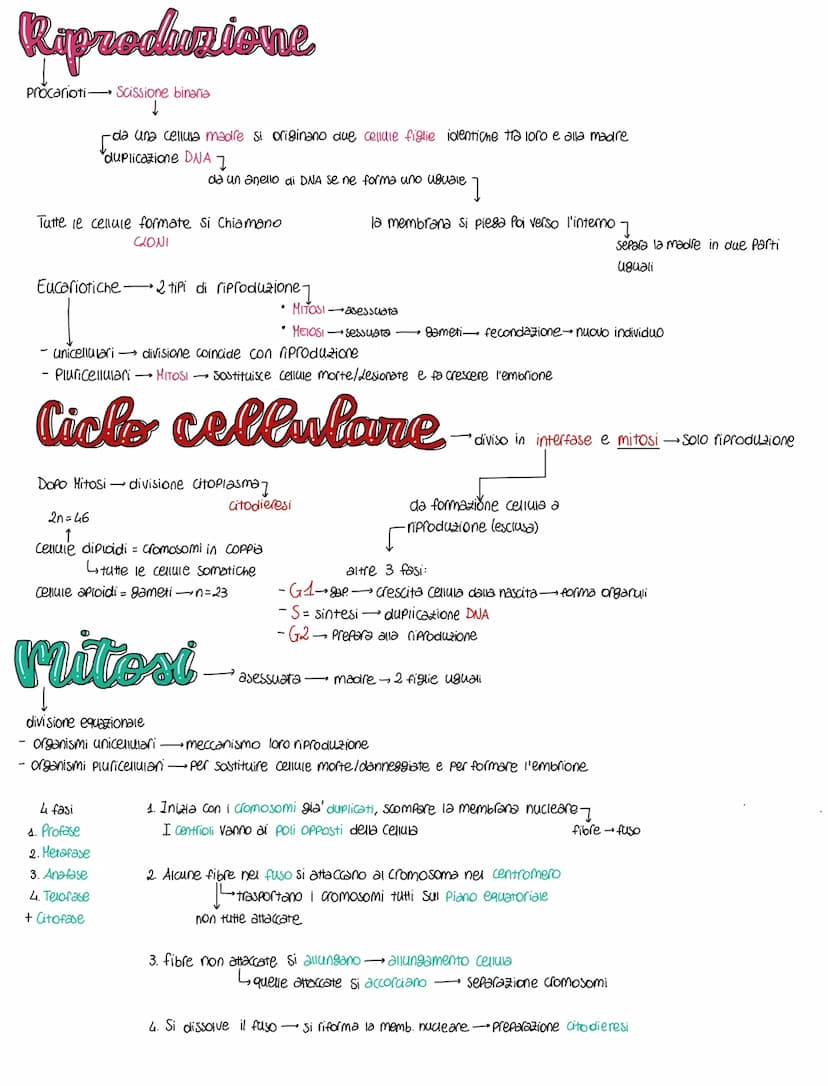 Riproduzione
Procarioti → Scissione binaria
da una cellula madre si originano due cellule figlie identiche tra loro e alla madre
duplicazione DNA
da un anello di DNA se ne forma uno uguale
Tutte le cellule formate si chiamano
CLONI
la membrana si piega poi verso l'interno
separa la madre in due parti
uguali
Eucariotiche → 2 tipi di riproduzione
• MITOSI → asessuata
• MEIOSI → sessuata → gameti → fecondazione → nuovo individuo
- unicellulari → divisione coincide con riproduzione
- Pluricellulari → MITOSI → sostituisce cellule morte/lesionate e fa crescere l'embrione
Ciclo cellulare → diviso in interfase e mitosi → solo riproduzione
Dopo Mitosi → divisione citoplasma
citodieresi
2n=46
cellule diploidi = cromosomi in coppia
↳ tutte le cellule somatiche
cellule aploidi = gameti → n=23
da formazione cellula a
riproduzione (esclusa)
altre 3 fasi:
- G1 → gap → crescita cellula dalla nascita → forma organuli
- S = sintesi → duplicazione DNA
- G2 → prepara alla riproduzione
Mitosi → asessuata → madre → 2 figlie uguali
divisione equazionale
- organismi unicellulari → meccanismo loro riproduzione
- organismi pluricellulari → per sostituire cellule morte/danneggiate e per formare l'embrione
4 fasi
1. Profase
2. Metafase
3. Anafase
4. Telofase
+ Citofase
1. Inizia con i cromosomi gia' duplicati, scompare la membrana nucleare
I centrioli vanno ai poli opposti della cellula
fibre → fuso
2 Alcune fibre nel fuso si attaccano al cromosoma nel centromero
↳ trasportano i cromosomi tutti sul piano equatoriale
non tutte attaccate
3. fibre non attaccate si allungano → allungamento cellula
↳ quelle attaccate si accorciano → separazione cromosomi
4. Si dissolve il fuso → si riforma la memb. nucleare → preparazione citodieresi